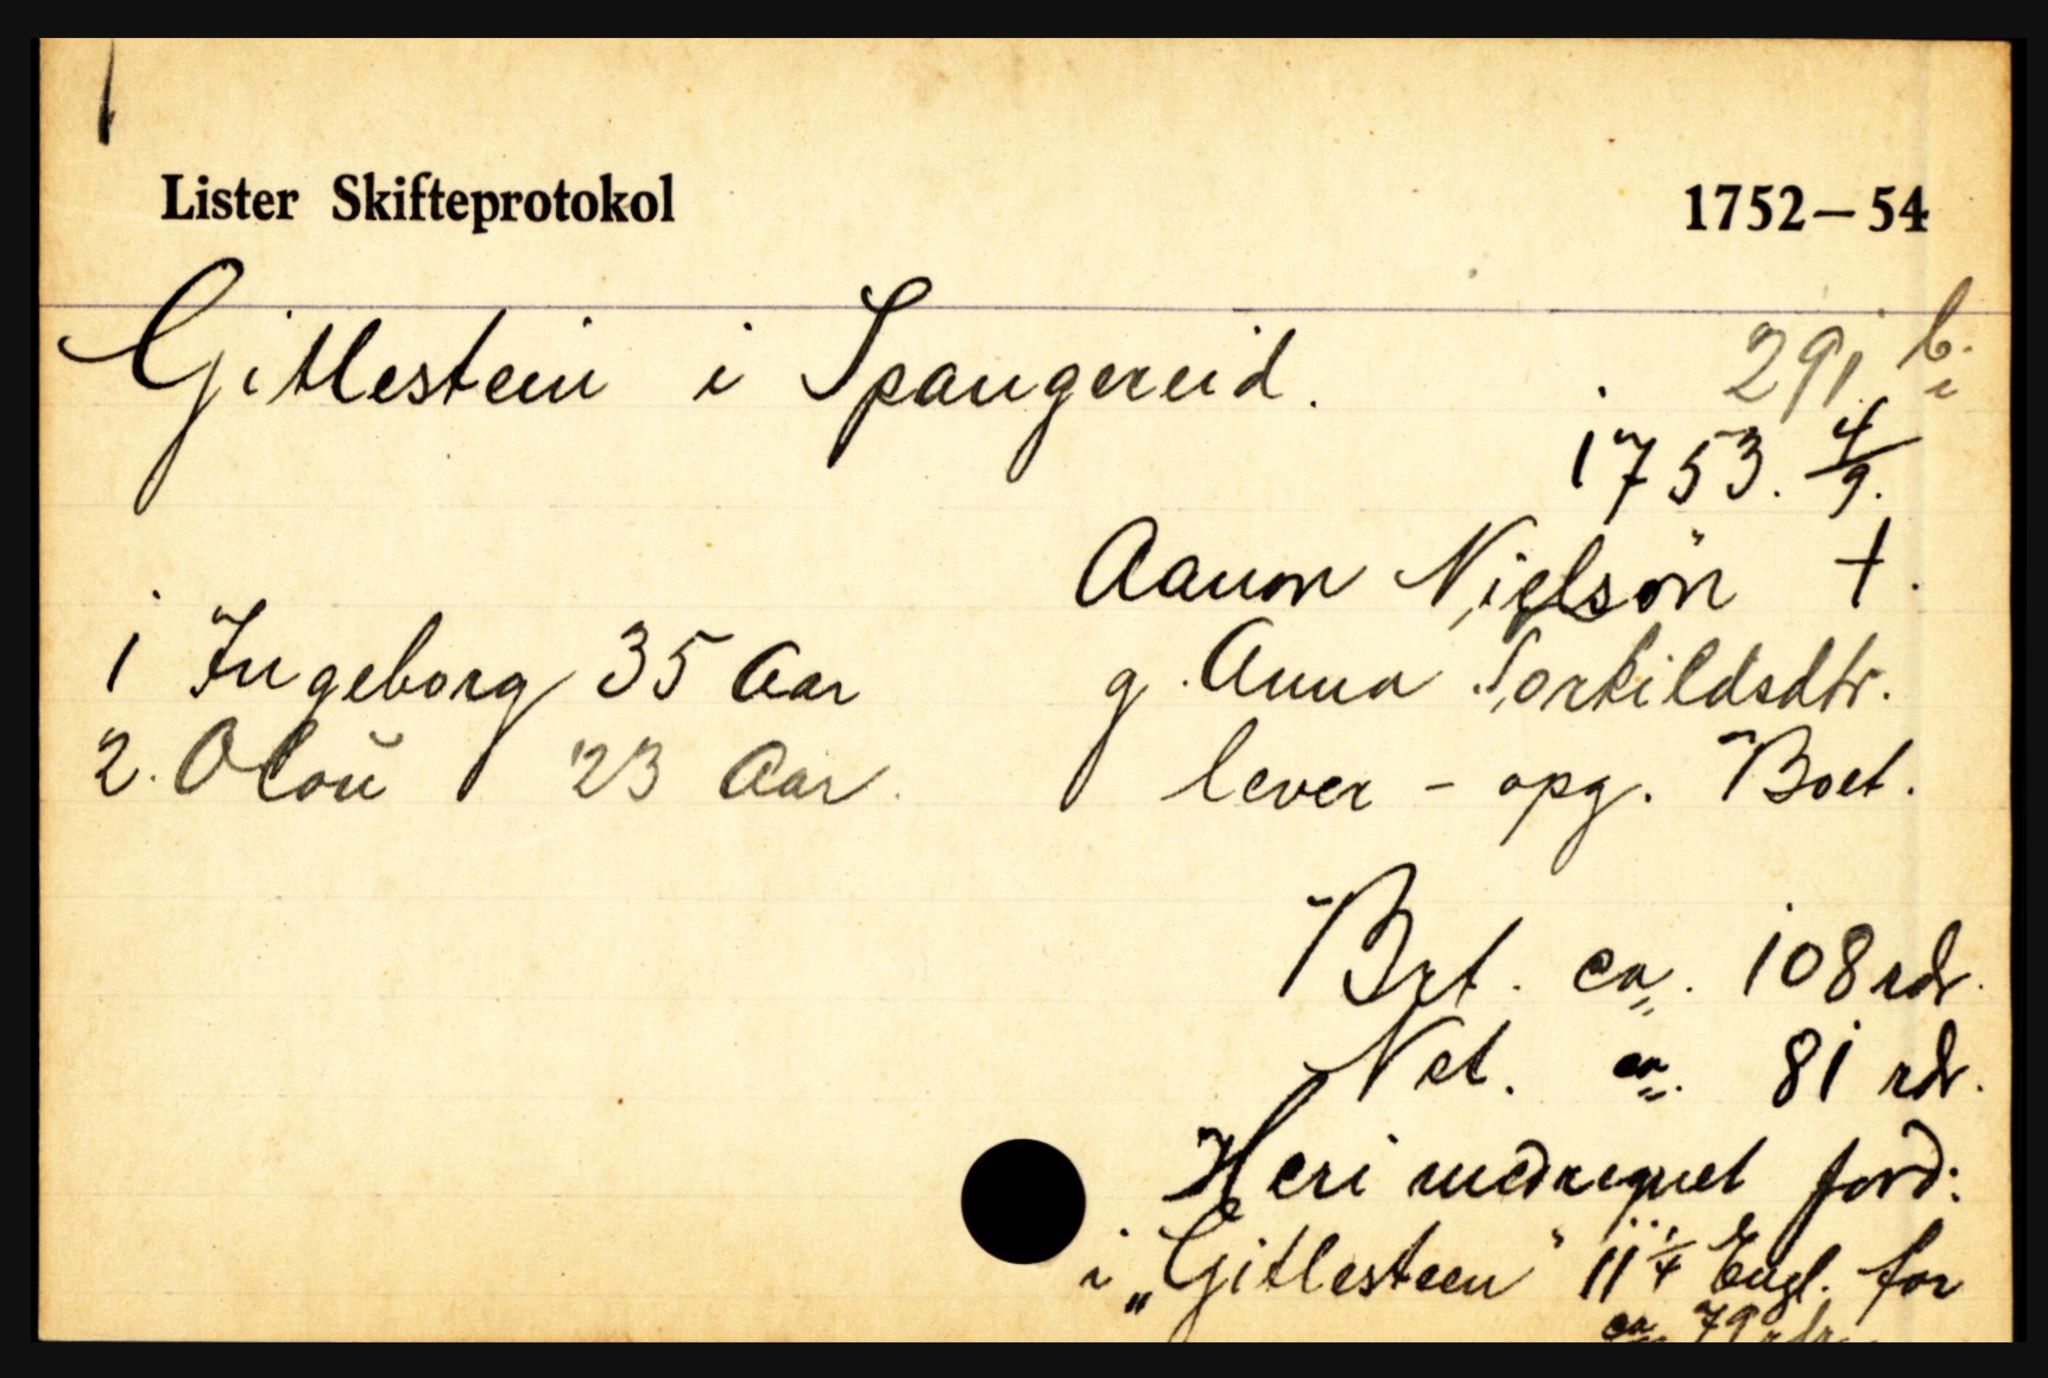 Lister Skifteprotokol 1752-54
Gitlestein i Spangereid.
291 b.
1753. 4/9.
Aanon Nielsön †.
1 Ingeborg 35 Aar
g. Anna Torkildsdtr.
2. Olou 23 Aar.
lever - opg. Boet.
Brt. ca. 108 rdr.
Net. ca. 81 rdr.
Heri medregnet jord:
i "Gitlesteen" 11 1/4 Engl. for
ca 79 rdr.